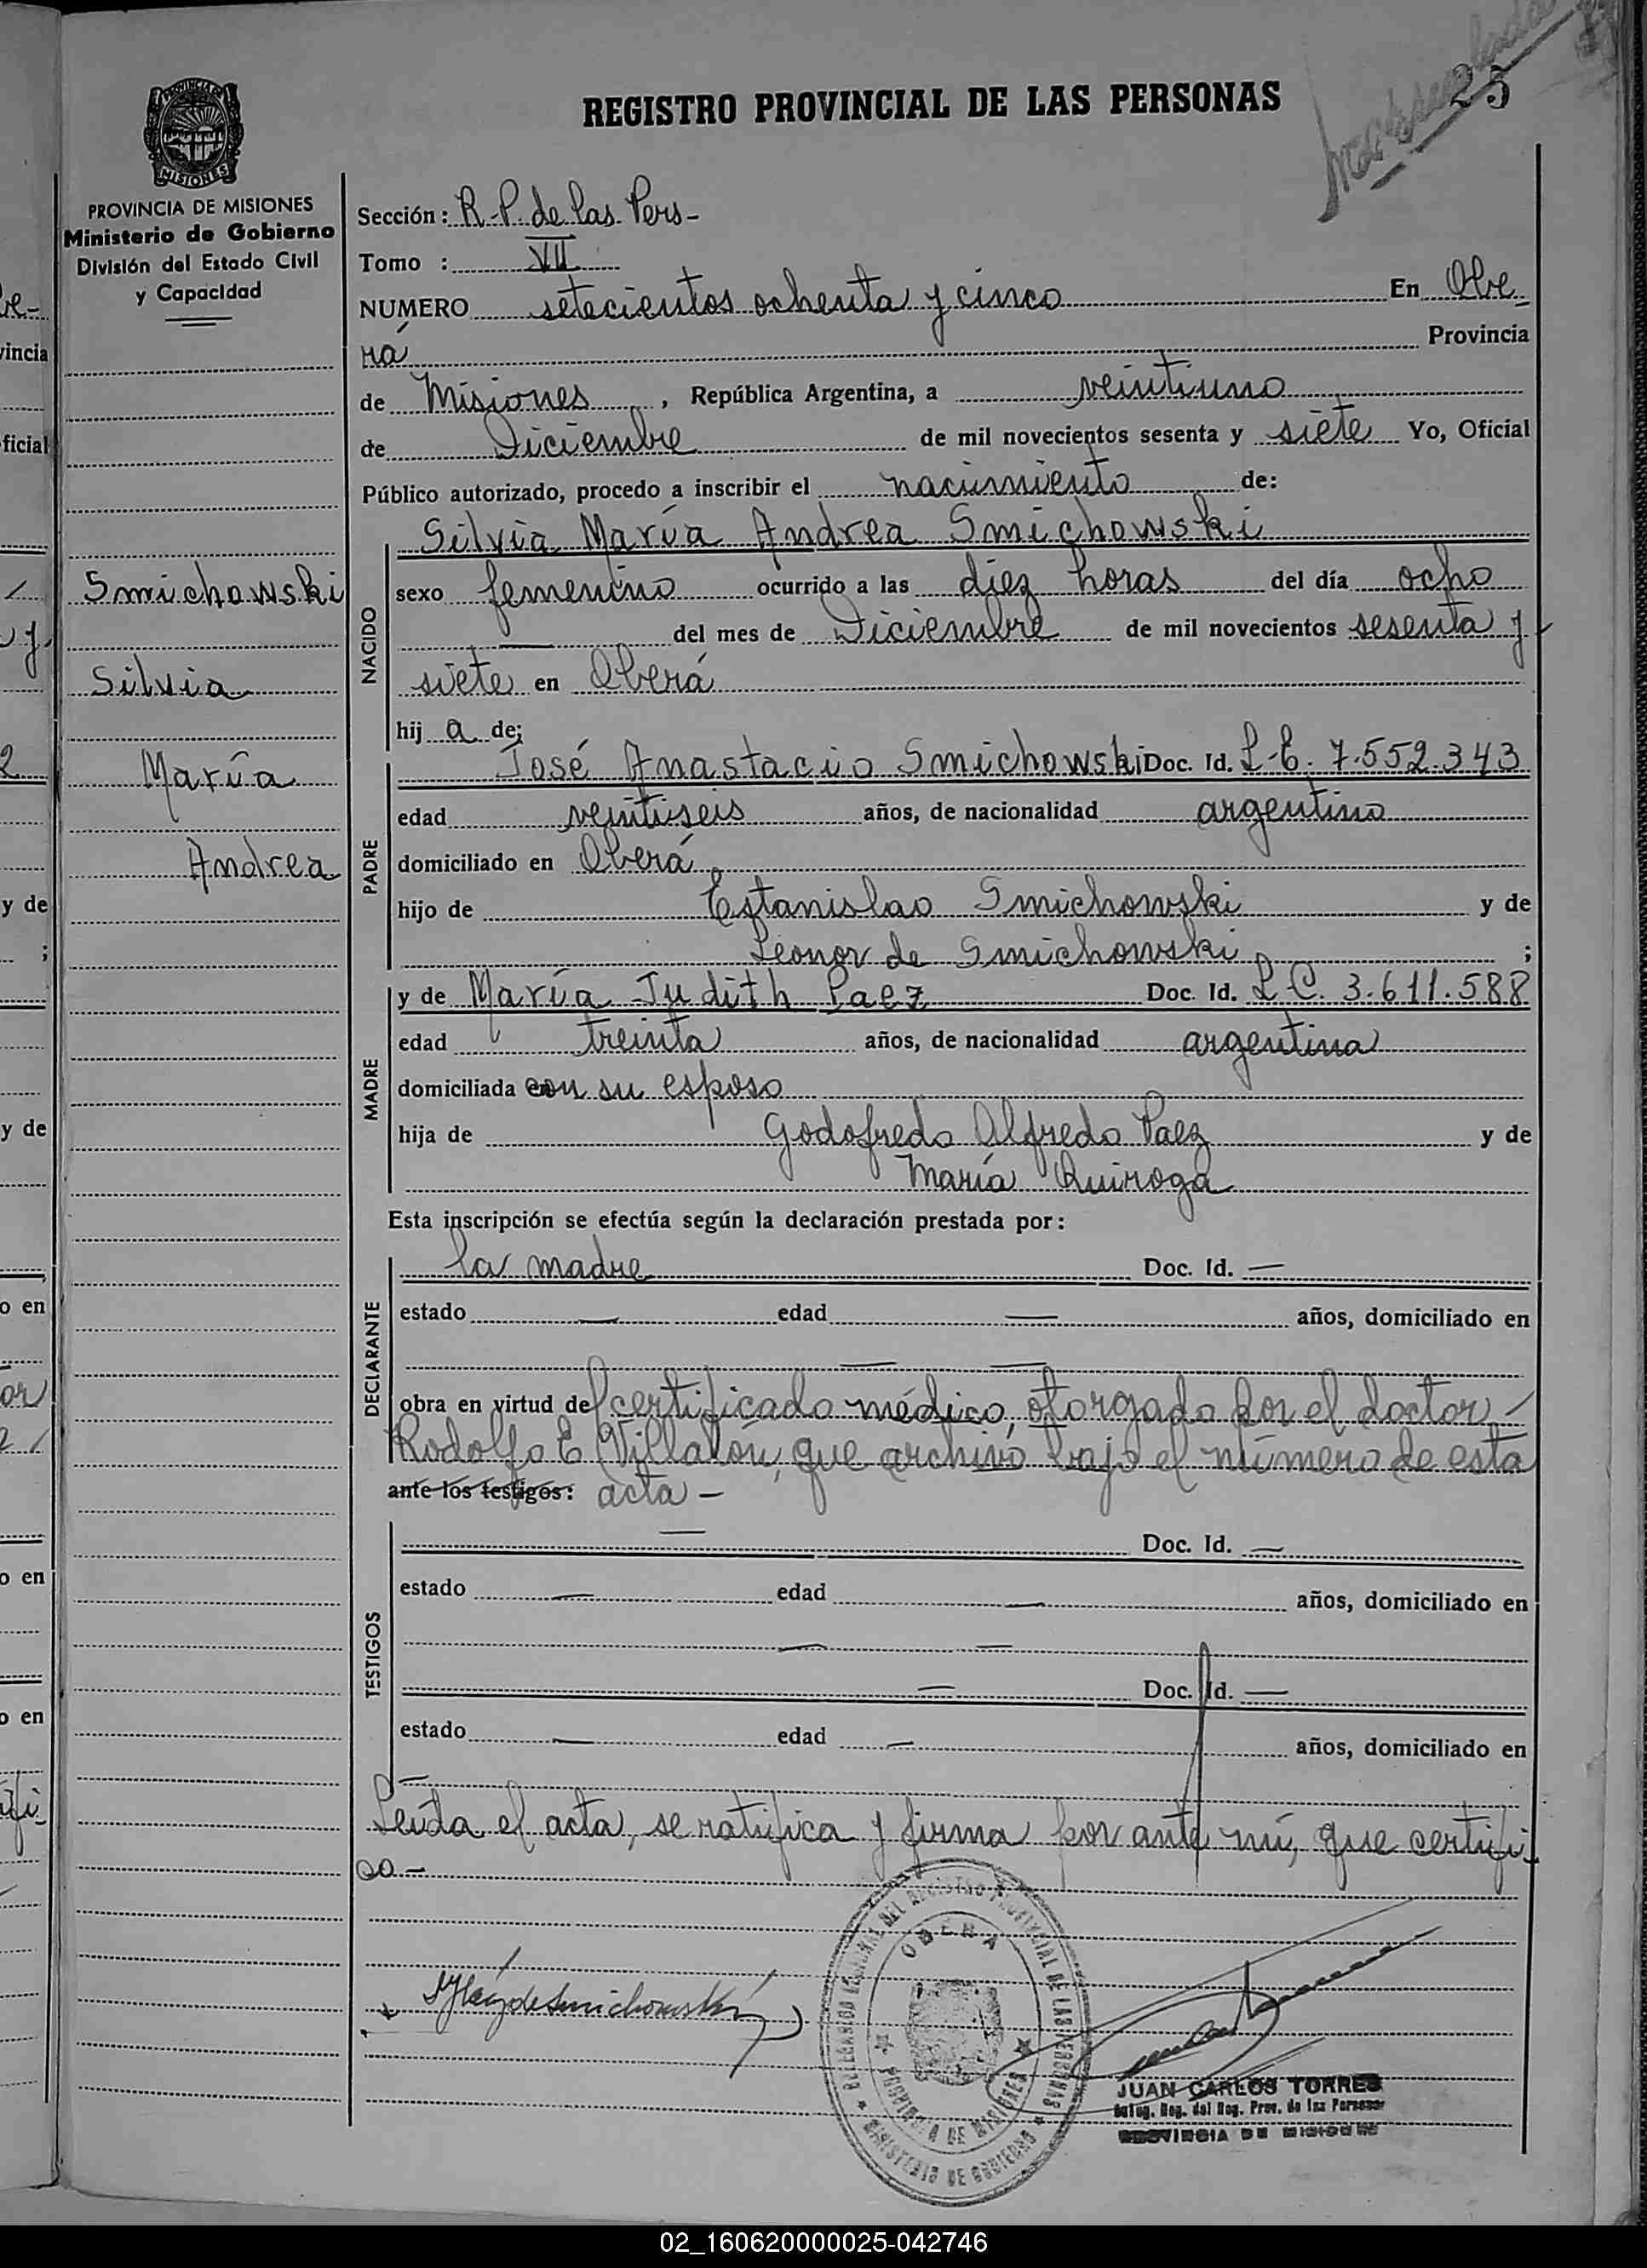 25
REGISTRO PROVINCIAL DE LAS PERSONAS
PROVINCIA DE MISIONES
Ministerio de Gobierno
División del Estado Civil
y Capacidad
Smichowski
Silvia
María
Andrea
Sección: R.P. de las Pers-
Tomo : VII
NUMERO setecientos ochenta y cinco En Obe-
rá Provincia
de Misiones, República Argentina, a veintiuno
de Diciembre de mil novecientos sesenta y siete Yo, Oficial
Público autorizado, procedo a inscribir el nacimiento de:
NACIDO
Silvia María Andrea Smichowski
sexo femenino ocurrido a las diez horas del día ocho
— del mes de Diciembre de mil novecientos sesenta y
siete en Oberá
hij a de;
PADRE
José Anastacio Smichowski Doc. Id. L.E. 7.552.343
edad veintiseis años, de nacionalidad argentino
domiciliado en Oberá
hijo de Estanislao Smichowski y de
Leonor de Smichowski ;
MADRE
y de María Judith Paez Doc. Id. L.C. 3.611.588
edad treinta años, de nacionalidad argentina
domiciliada con su esposo
hija de Godofredo Alfredo Paez y de
María Quiroga
Esta inscripción se efectúa según la declaración prestada por:
DECLARANTE
la madre Doc. Id. —
estado — edad — años, domiciliado en
— —
obra en virtud del certificado médico, otorgado por el doctor
Rodolfo E. Villalón, que archivo bajo el número de esta
ante los testigos: acta -
TESTIGOS
— Doc. Id. —
estado — edad — años, domiciliado en
— —
— Doc. Id. —
estado — edad — años, domiciliado en
—
Leída el acta, se ratifica y firma por ante mí, que certifi-
co.-
OBERA
PROVINCIA DE MISIONES
MINISTERIO DE GOBIERNO
DEL REGISTRO PROVINCIAL DE LAS PERSONAS
de Smichowski
JUAN CARLOS TORRES
Deleg. Reg. del Reg. Prov. de las Personas
PROVINCIA DE MISIONES
02_160620000025-042746